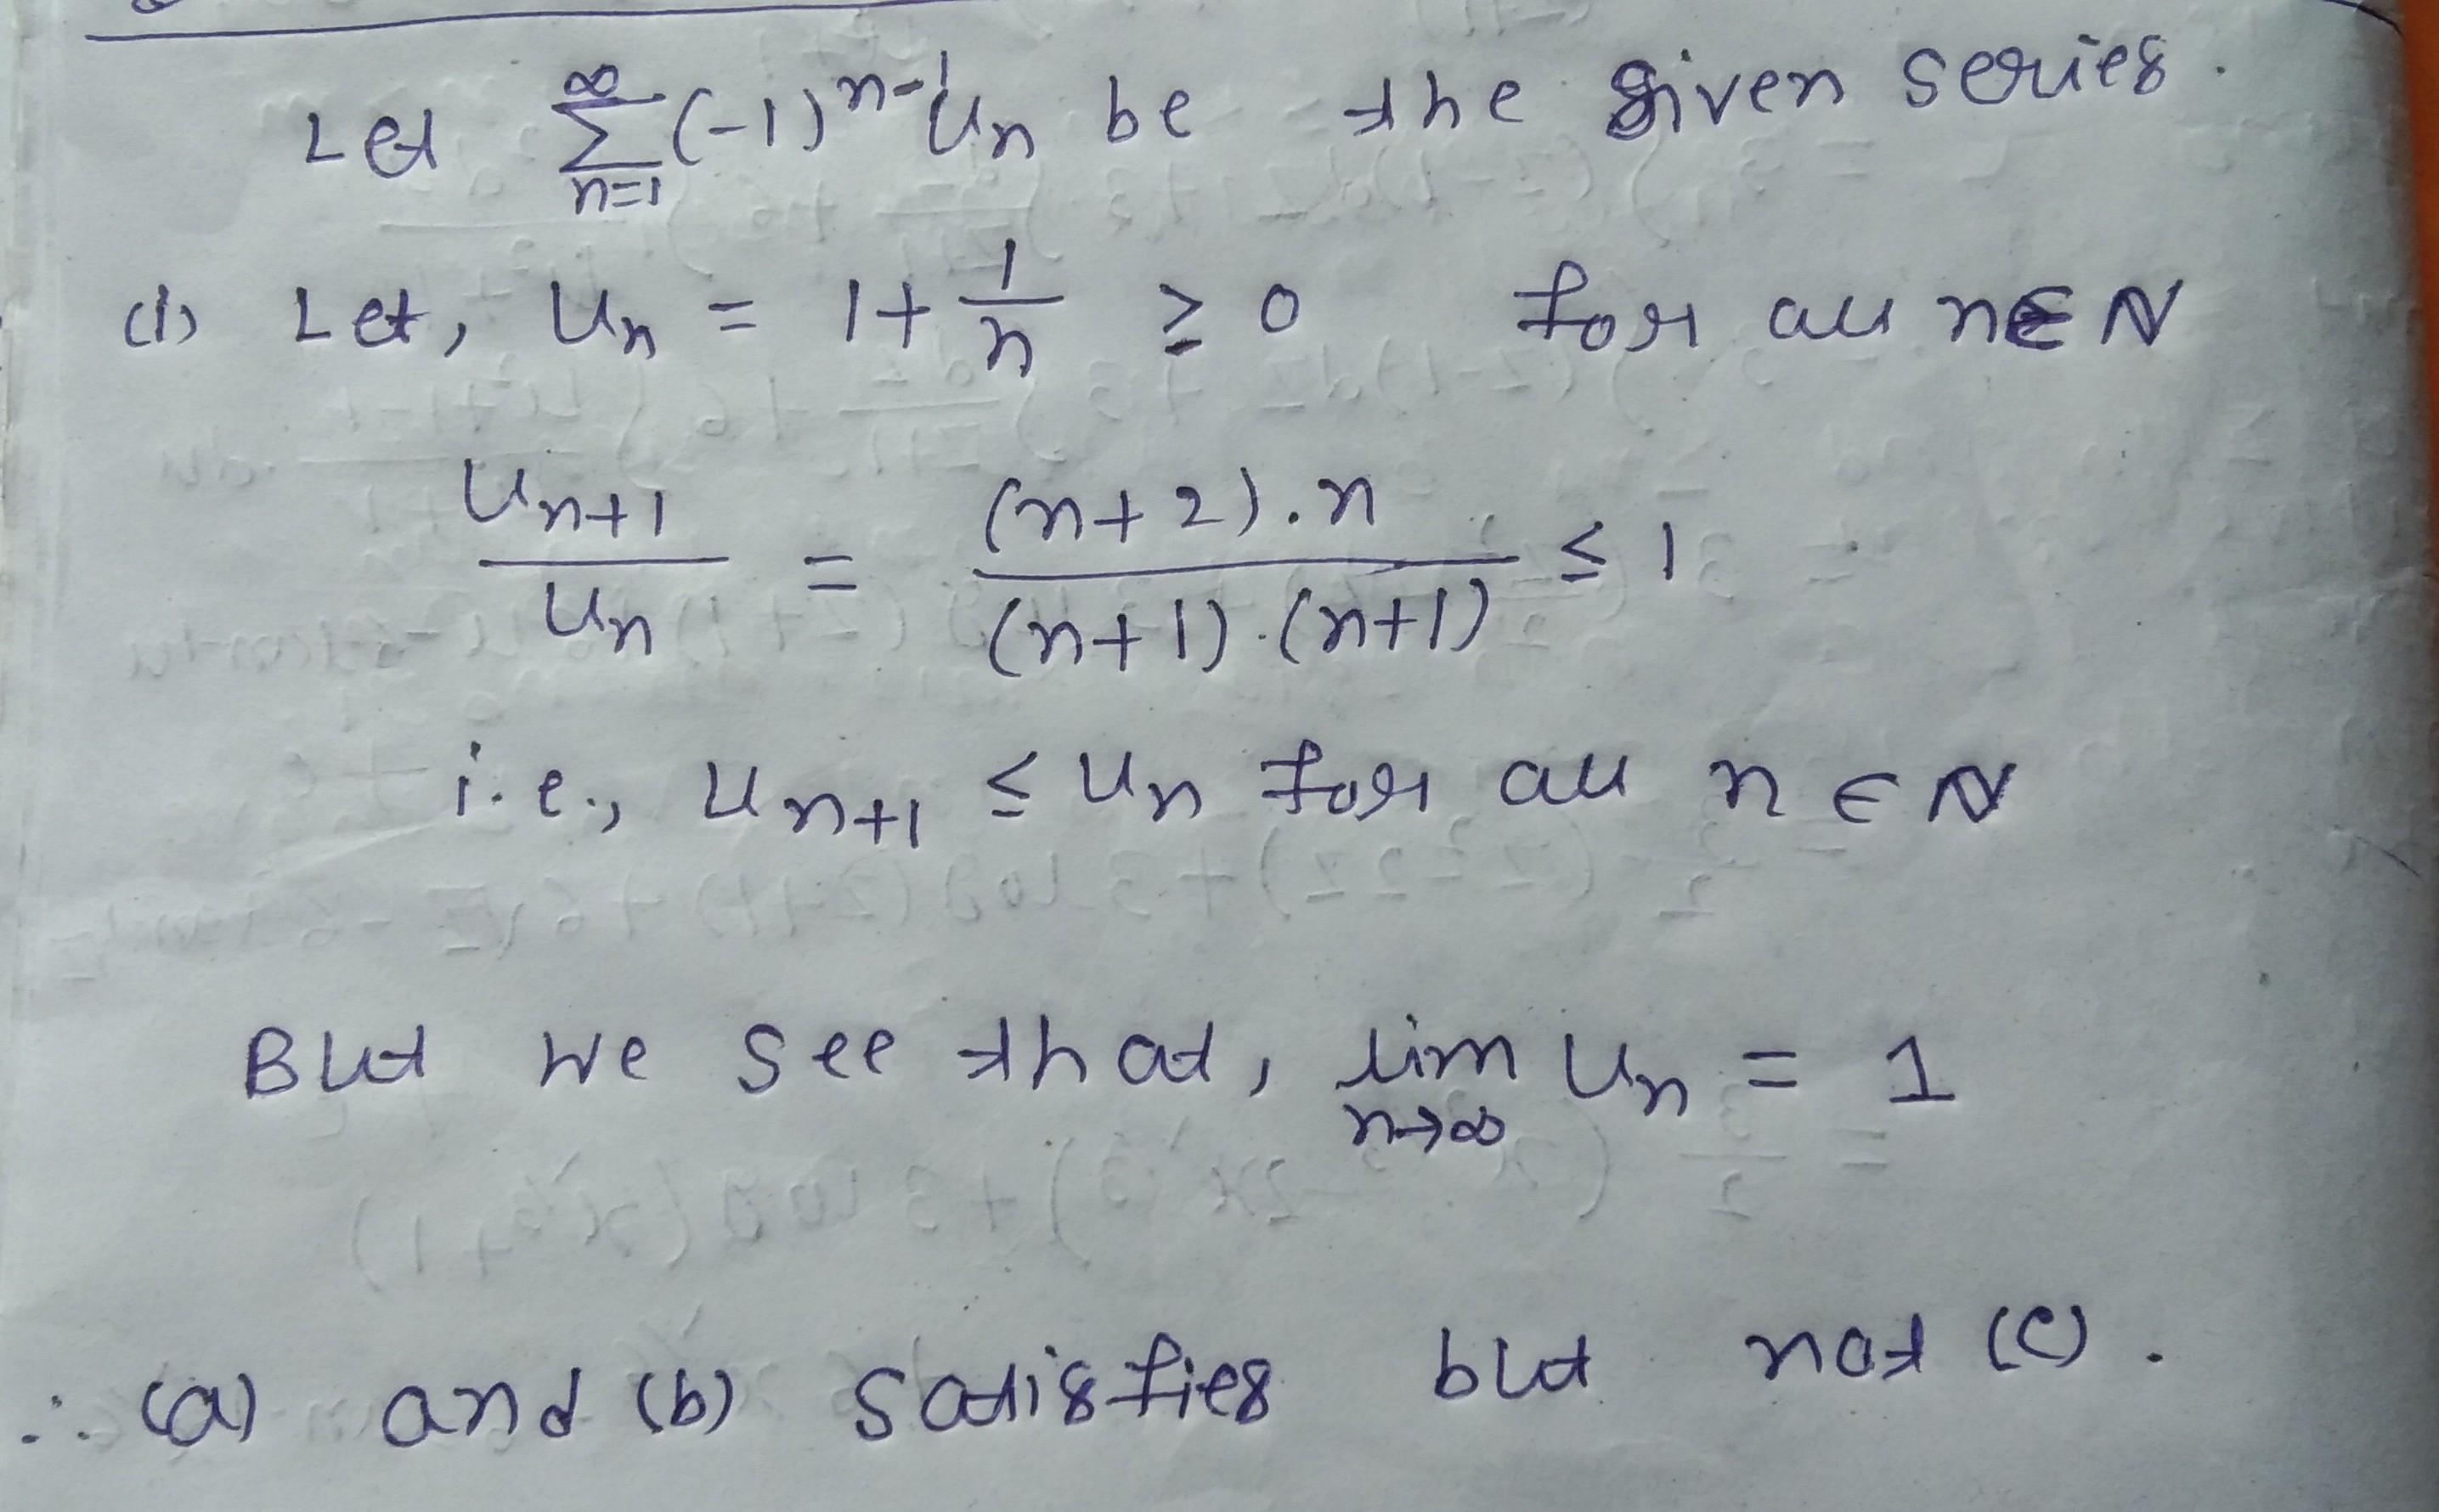 Let ∑_{n=1}^{∞} (-1)^{n-1} u_n be the given series.
(i) Let, u_n = 1 + 1/n ≥ 0 for all n ∈ N
u_{n+1}/u_n = (n+2).n / (n+1).(n+1) ≤ 1
i.e., u_{n+1} ≤ u_n for all n ∈ N
But we see that, lim_{n→∞} u_n = 1
∴ (a) and (b) satisfies but not (c).